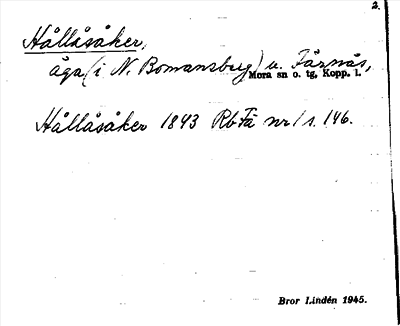 2.
Hållåsåker,
äga (i N. Bomansberg) u. Färnäs,
Mora sn o. tg, Kopp. l.
Hållåsåker 1843 RbFä nr 1 s. 146.
Bror Lindén 1945.